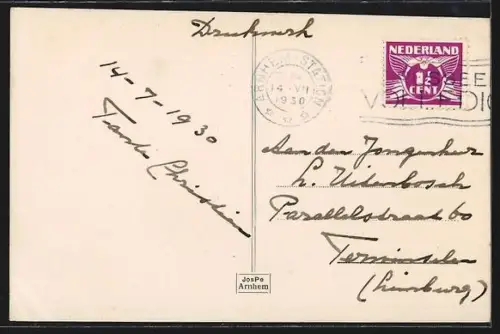 Drukwerk
14-7-1930
Tante Christien
ARNHEM STATION
14 VII
1930
NEDERLAND
1½
CENT
Aan den Jongenheer
L. Uidenbosch
Parallelstraat 60
(Limburg)
JosPe
Arnhem